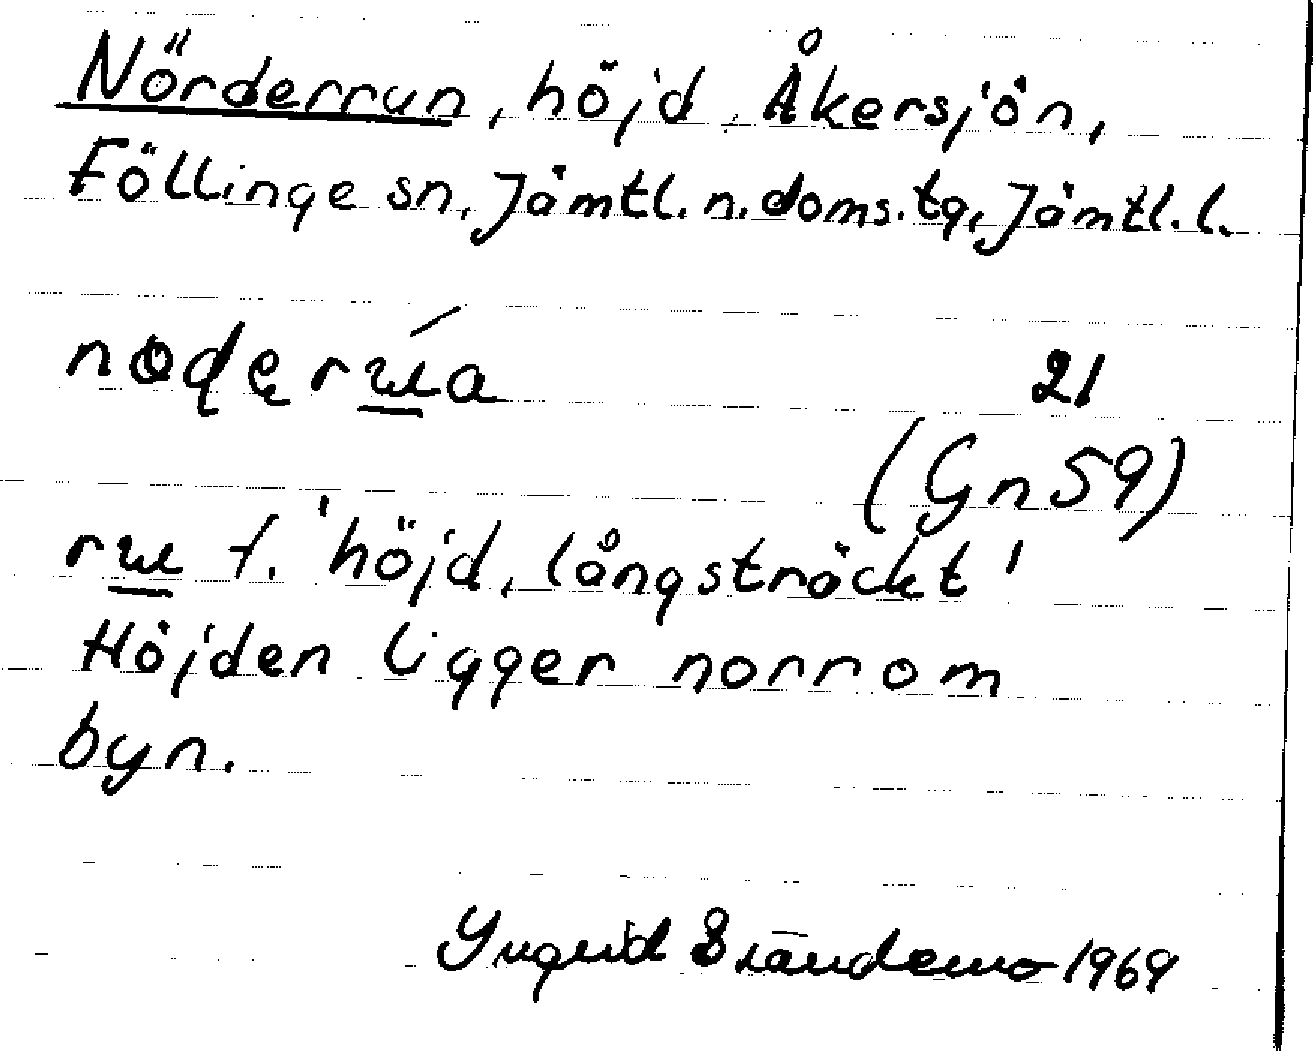 Nörderrun, höjd, Åkersjön,
Föllinge sn, Jämtl. n. doms. tg, Jämtl. l.
21
(Gn 59)
f. 'höjd, långsträckt'
Höjden ligger norrom
byn.
Ingrid Brändemo 1969